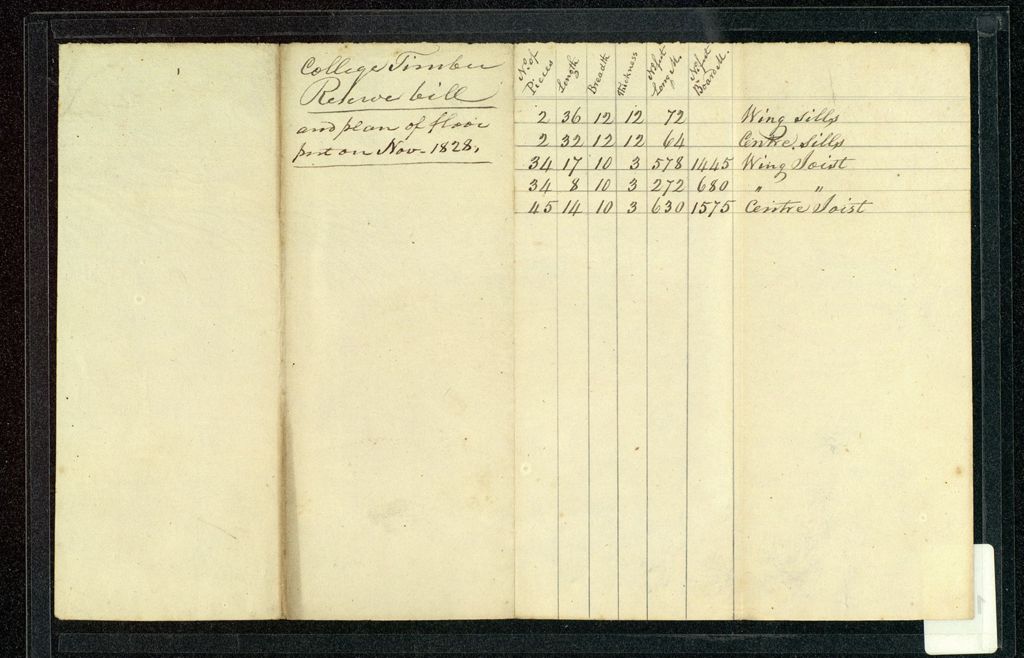 College Timber
Reserve bill
and plan of floor
put on Nov. 1828.
No. of Pieces Length Breadth Thickness No feet Long M. No feet Board M.
2 36 12 12 72 Wing Sills
2 32 12 12 64 Centre Sills
34 17 10 3 578 1445 Wing Joist
34 8 10 3 272 680 " "
45 14 10 3 630 1575 Centre Joist